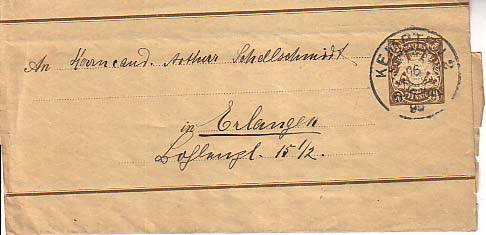 An Herrn cand. Arthur Schellschmidt
in Erlangen
15 1/2.
KEMPTEN 2
16
99
3 3